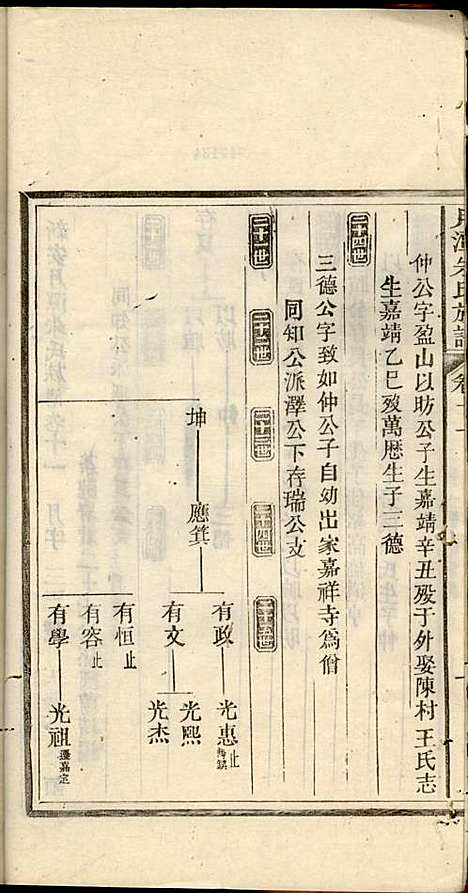 月潭朱氏族譜 卷十一
仲公字盈山以昉公子生嘉靖辛丑歿于外娶陳村王氏志
生嘉靖乙巳歿萬歷生子三德
二十四世
三德公字致如仲公子自幼出家嘉祥寺爲僧
同知公派澤公下存瑞公支
二十一世 二十二世 二十三世 二十四世 二十五世
坤 應箕 有政 光惠止
有文 光熙
光杰
有恒止
有容止
有學 光祖遷嘉定